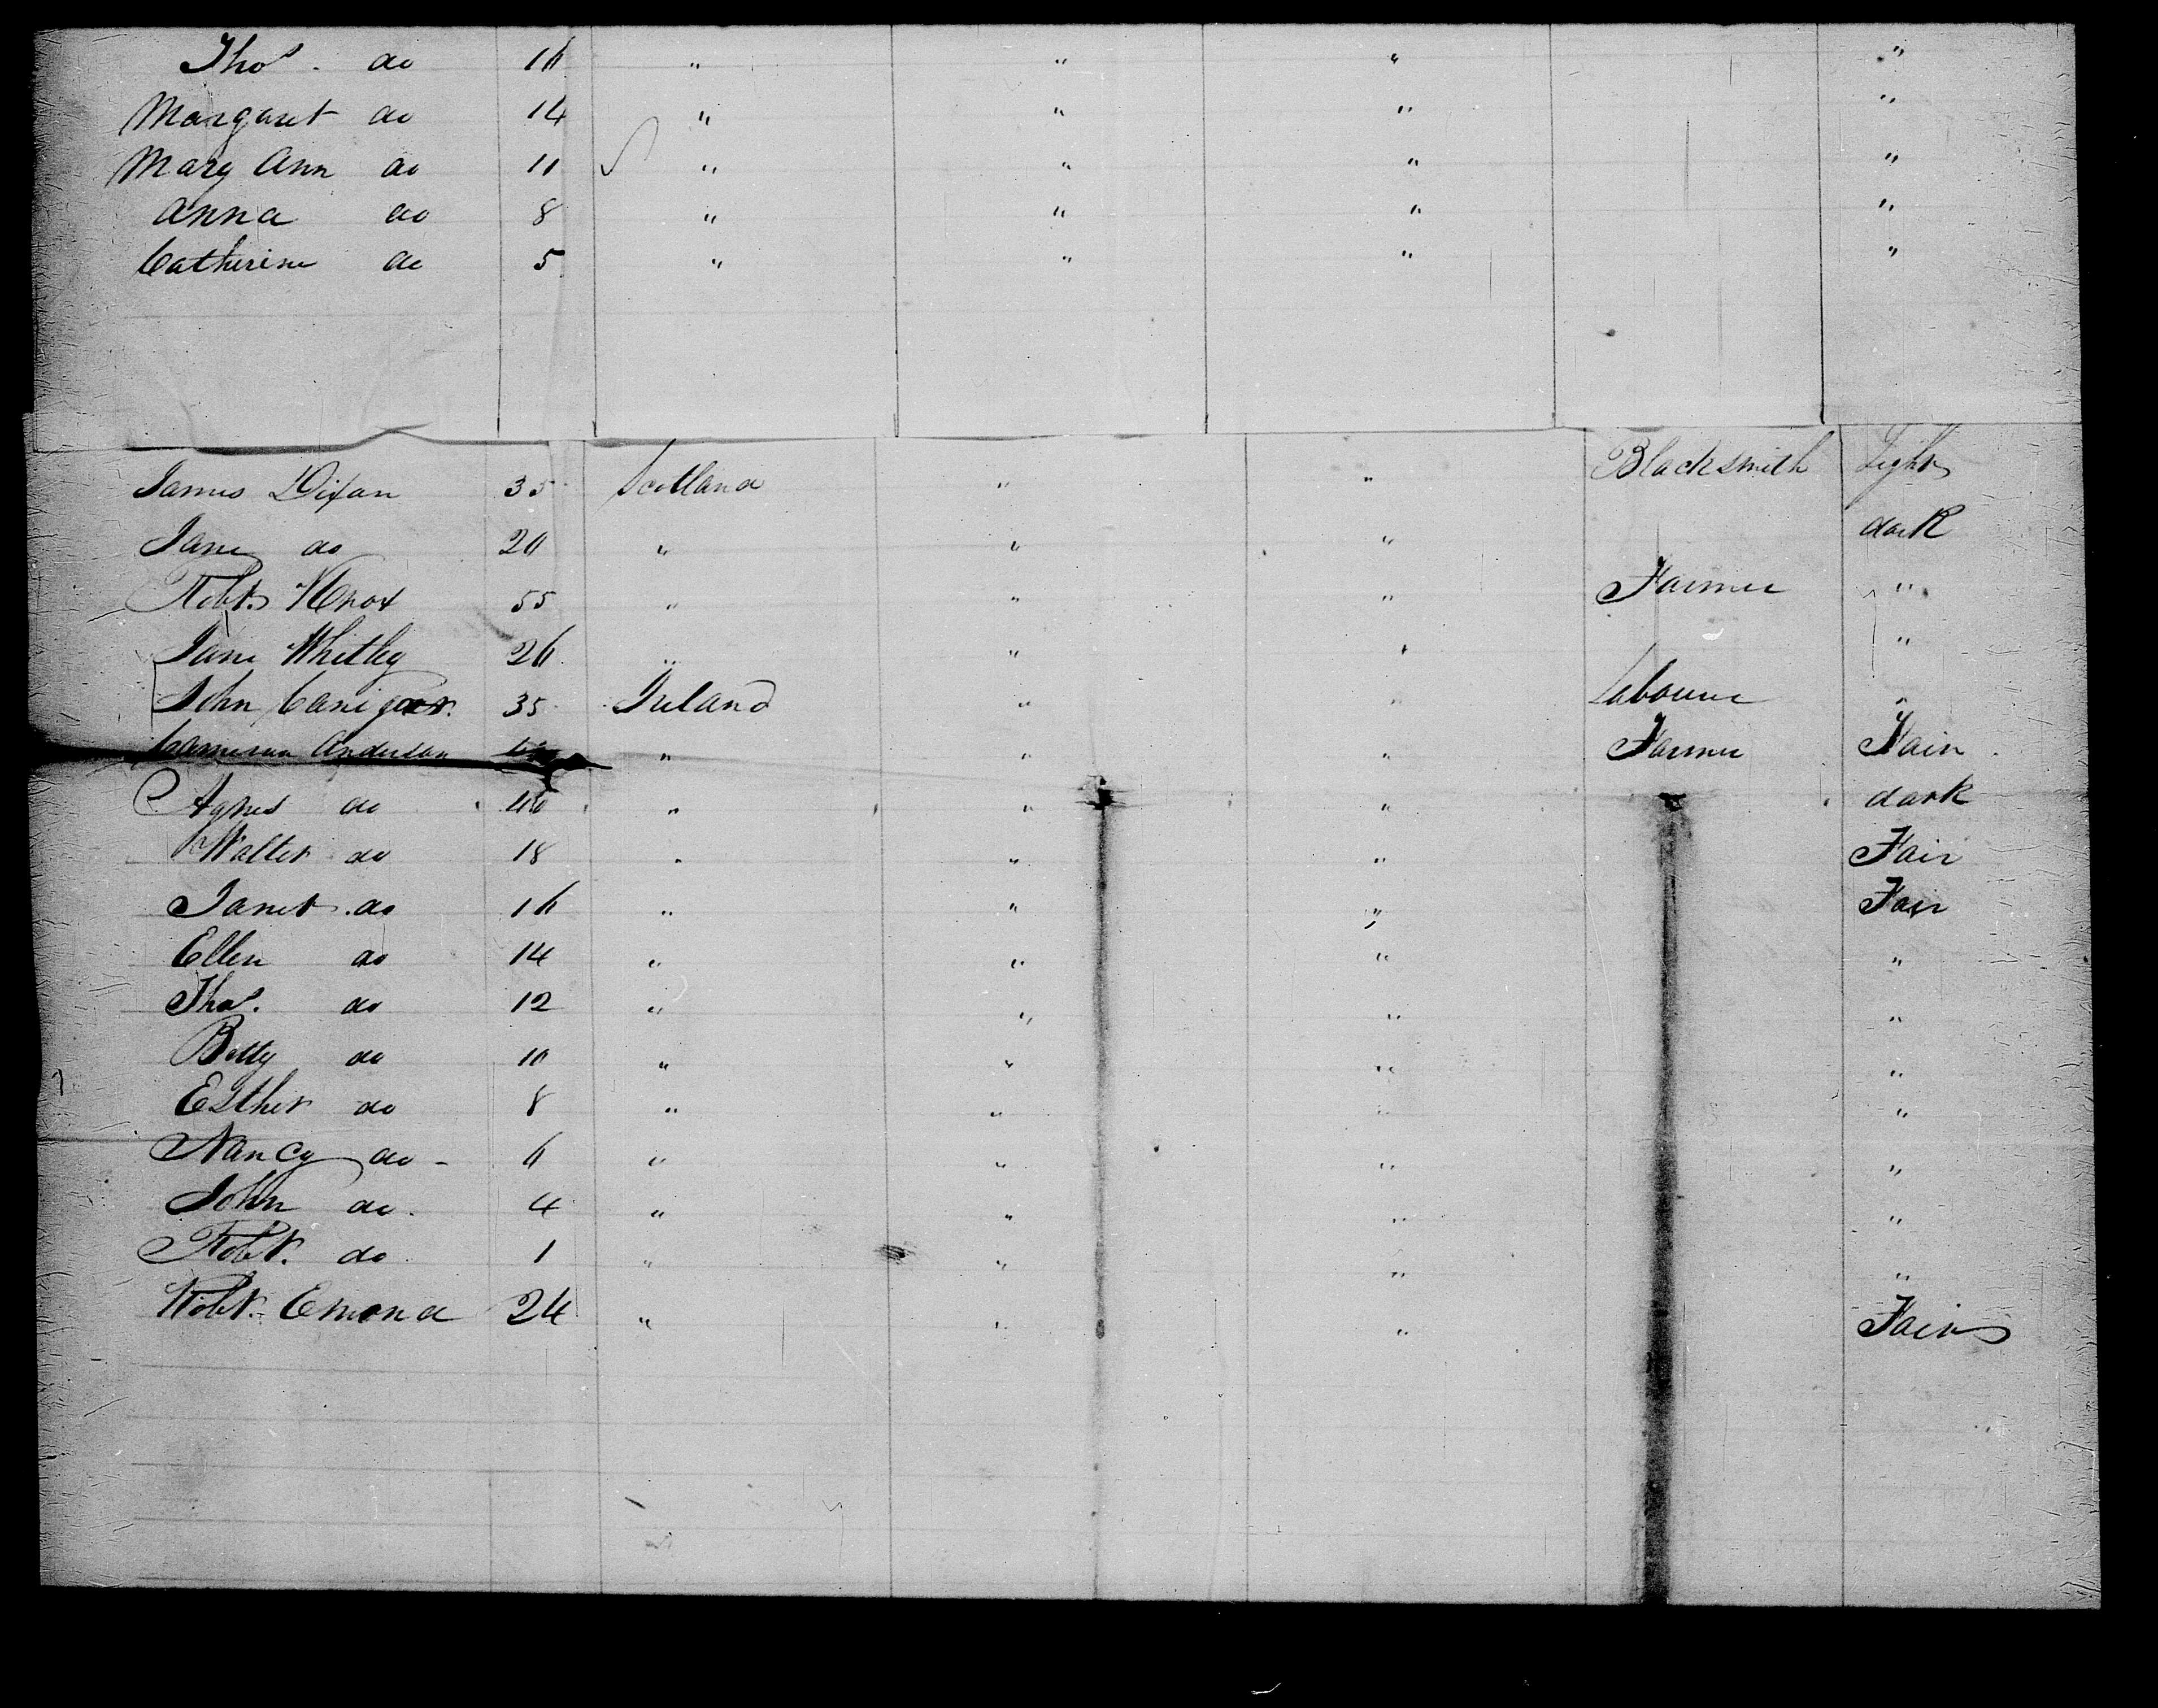 Thos. do 16 " " " "
Margaret do 14 " " " "
Mary Ann do 11 " " " "
Anna do 8 " " " "
Catherine do 5 " " " "
James Dixan 35 Scotland " " Blacksmith Light
Jane do 20 " " " dark
Robt. Knox 55 " " " Farmer "
Jane Whitley 26 " " " "
John 35 Ireland " " Labourer "
Cameron Anderson " " " Farmer Fair
Agnes do 40 " " " dark
Walter do 18 " " " Fair
Janet do 16 " " " Fair
Ellen do 14 " " " "
Thos. do 12 " " " "
Betty do 10 " " " "
Esther do 8 " " " "
Nancy do - 6 " " " "
John do. 4 " " " "
Robt. do 1 " " " "
Robt. Emond 24 " " " Fair